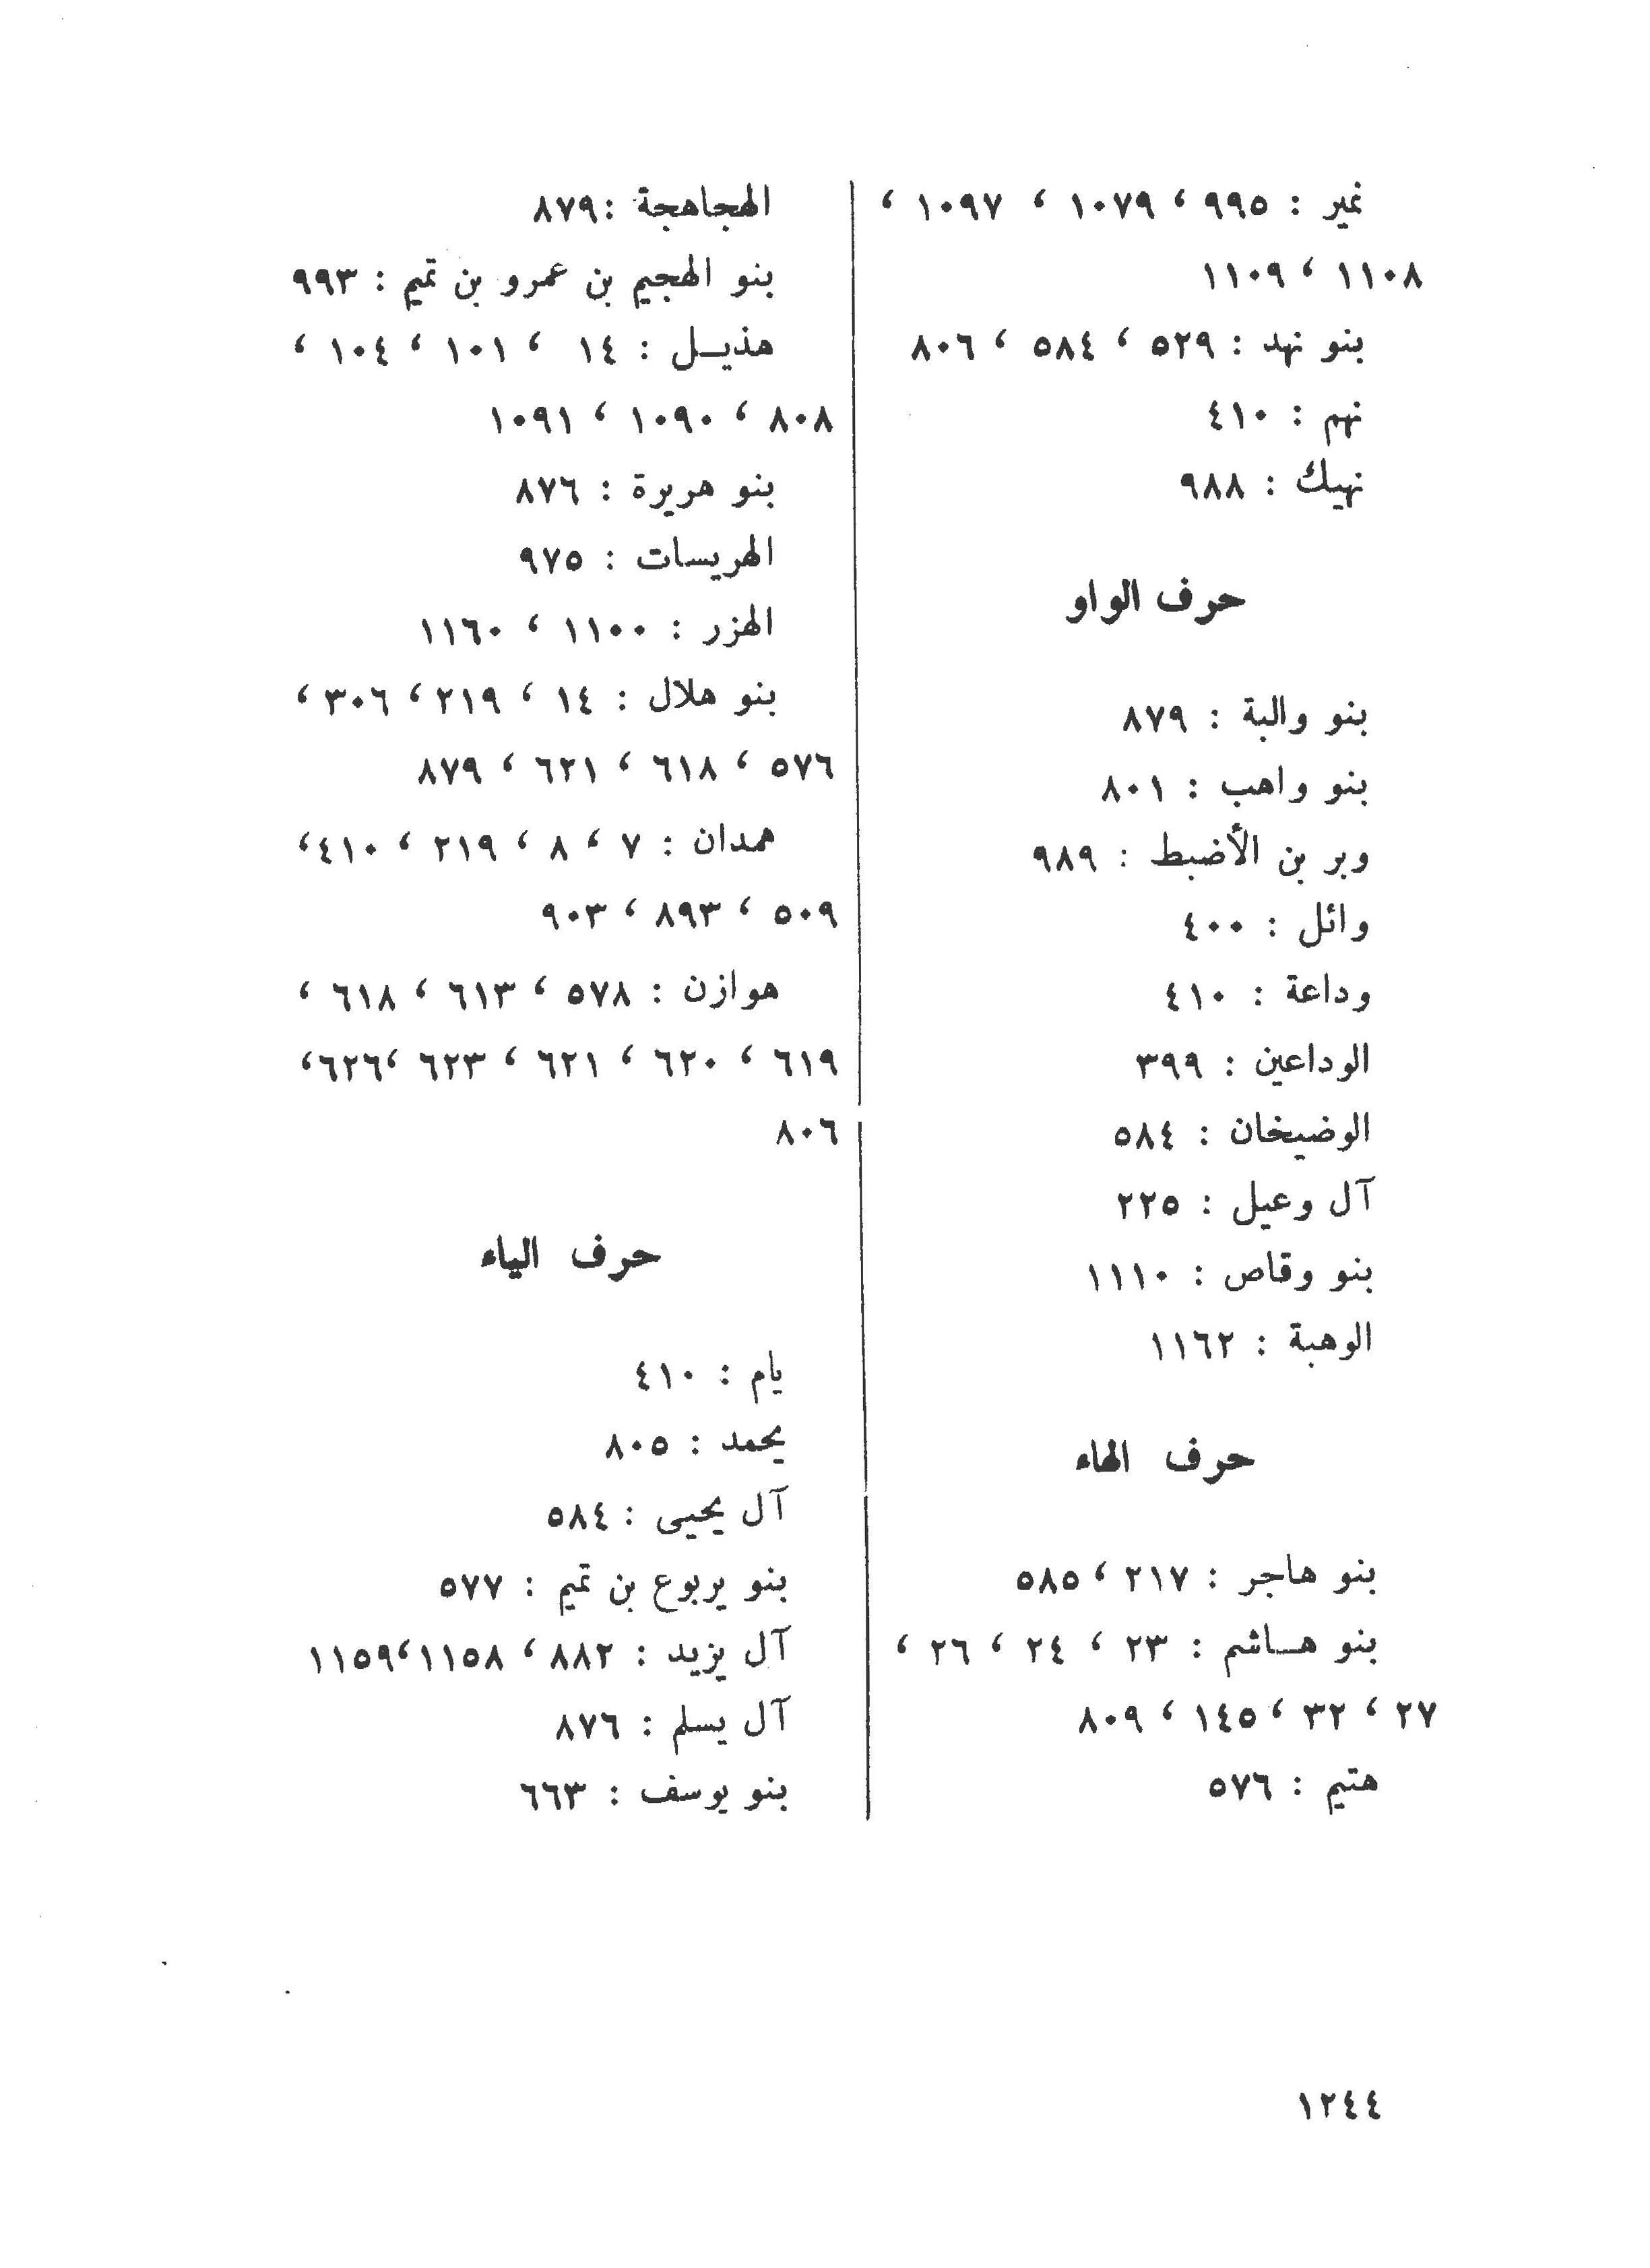 نمير : ٩٩٥ ، ١٠٧٩ ، ١٠٩٧ ،
١١٠٨ ، ١١٠٩
بنو نهد : ٥٢٩ ، ٥٨٤ ، ٨٠٦
نهم : ٤١٠
نهيك : ٩٨٨
حرف الواو
بنو والبة : ٨٧٩
بنو واهب : ٨٠١
وبر بن الأضبط : ٩٨٩
وائل : ٤٠٠
وداعة : ٤١٠
الوداعين : ٣٩٩
الوضيخان : ٥٨٤
آل وعيل : ٢٢٥
بنو وقاص : ١١١٠
الوهبة : ١١٦٢
حرف الهاء
بنو هاجر : ٢١٧ ، ٥٨٥
بنو هـاشم : ٢٣ ، ٢٤ ، ٢٦ ،
٢٧ ، ٣٢ ، ١٤٥ ، ٨٠٩
هتيم : ٥٧٦
الهجاهجة : ٨٧٩
بنو الهجيم بن عمرو بن تميم : ٩٩٣
هذيـل : ١٤ ، ١٠١ ، ١٠٤ ،
٨٠٨ ، ١٠٩٠ ، ١٠٩١
بنو هريرة : ٨٧٦
الهريسات : ٩٧٥
الهزر : ١١٠٠ ، ١١٦٠
بنو هلال : ١٤ ، ٢١٩ ، ٣٠٦ ،
٥٧٦ ، ٦١٨ ، ٦٢١ ، ٨٧٩
همدان : ٧ ، ٨ ، ٢١٩ ، ٤١٠ ،
٥٠٩ ، ٨٩٣ ، ٩٠٣
هوازن : ٥٧٨ ، ٦١٣ ، ٦١٨ ،
٦١٩ ، ٦٢٠ ، ٦٢١ ، ٦٢٣ ، ٦٢٦ ،
٨٠٦
حرف الياء
يام : ٤١٠
يحمد : ٨٠٥
آل يحيى : ٥٨٤
بنو يربوع بن تميم : ٥٧٧
آل يزيد : ٨٨٢ ، ١١٥٨ ، ١١٥٩
آل يسلم : ٨٧٦
بنو يوسف : ٦٦٣
١٢٤٤